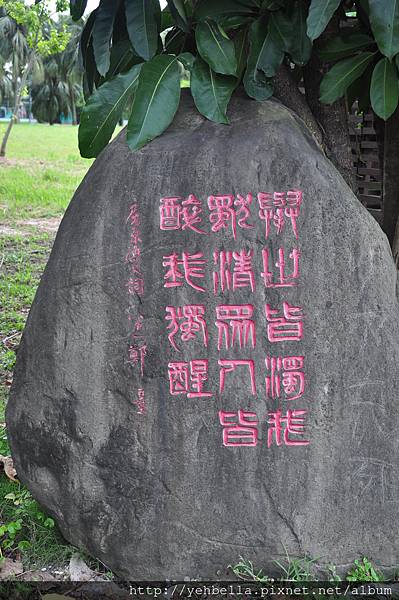 舉世皆濁我
獨清眾人皆
醉我獨醒
屈原漁父詞
http://yehbella.pixnet.net/album